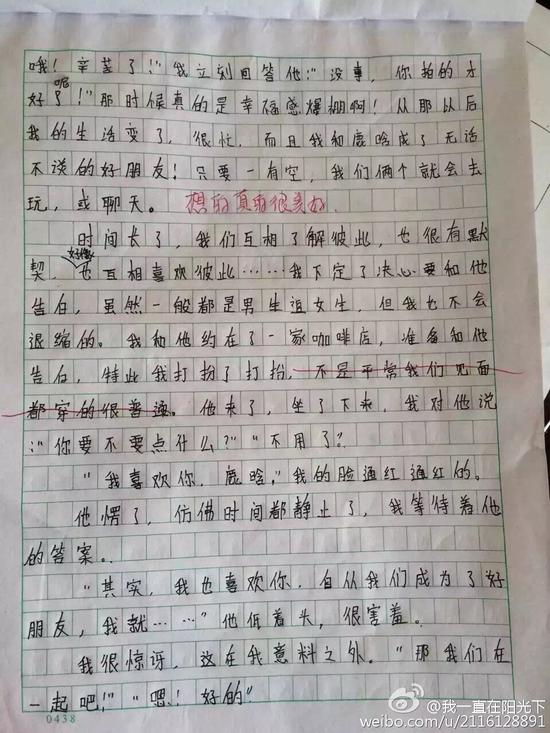 哦！辛苦了！"我立刻回答他："没事，你拍的才
呢
好了！"那时候真的是幸福感爆棚啊！从那以后
我的生活变了，很忙，而且我和鹿晗成了无话
不说的好朋友！只要一有空，我们俩个就会去
玩，或聊天。 想的真的很美好.
时间长了，我们互相了解彼此，也很有默
好像
契，也互相喜欢彼此……我下定了决心要和他
告白，虽然一般都是男生追女生，但我也不会
退缩的。我和他约在了一家咖啡店，准备和他
告白，特此我打扮了打扮，不是平常我们见面
都穿的很普通。他来了，坐了下来，我对他说
："你要不要点什么？""不用了？
"我喜欢你，鹿晗，"我的脸通红通红的。
他愣了，仿佛时间都静止了，我等待着他
的答案。
"其实，我也喜欢你，自从我们成为了好
朋友，我就……"他低着头，很害羞。
我很惊讶，这在我意料之外。"那我们在
一起吧！""嗯！好的"
0438
@我一直在阳光下
weibo.com/u/2116128891